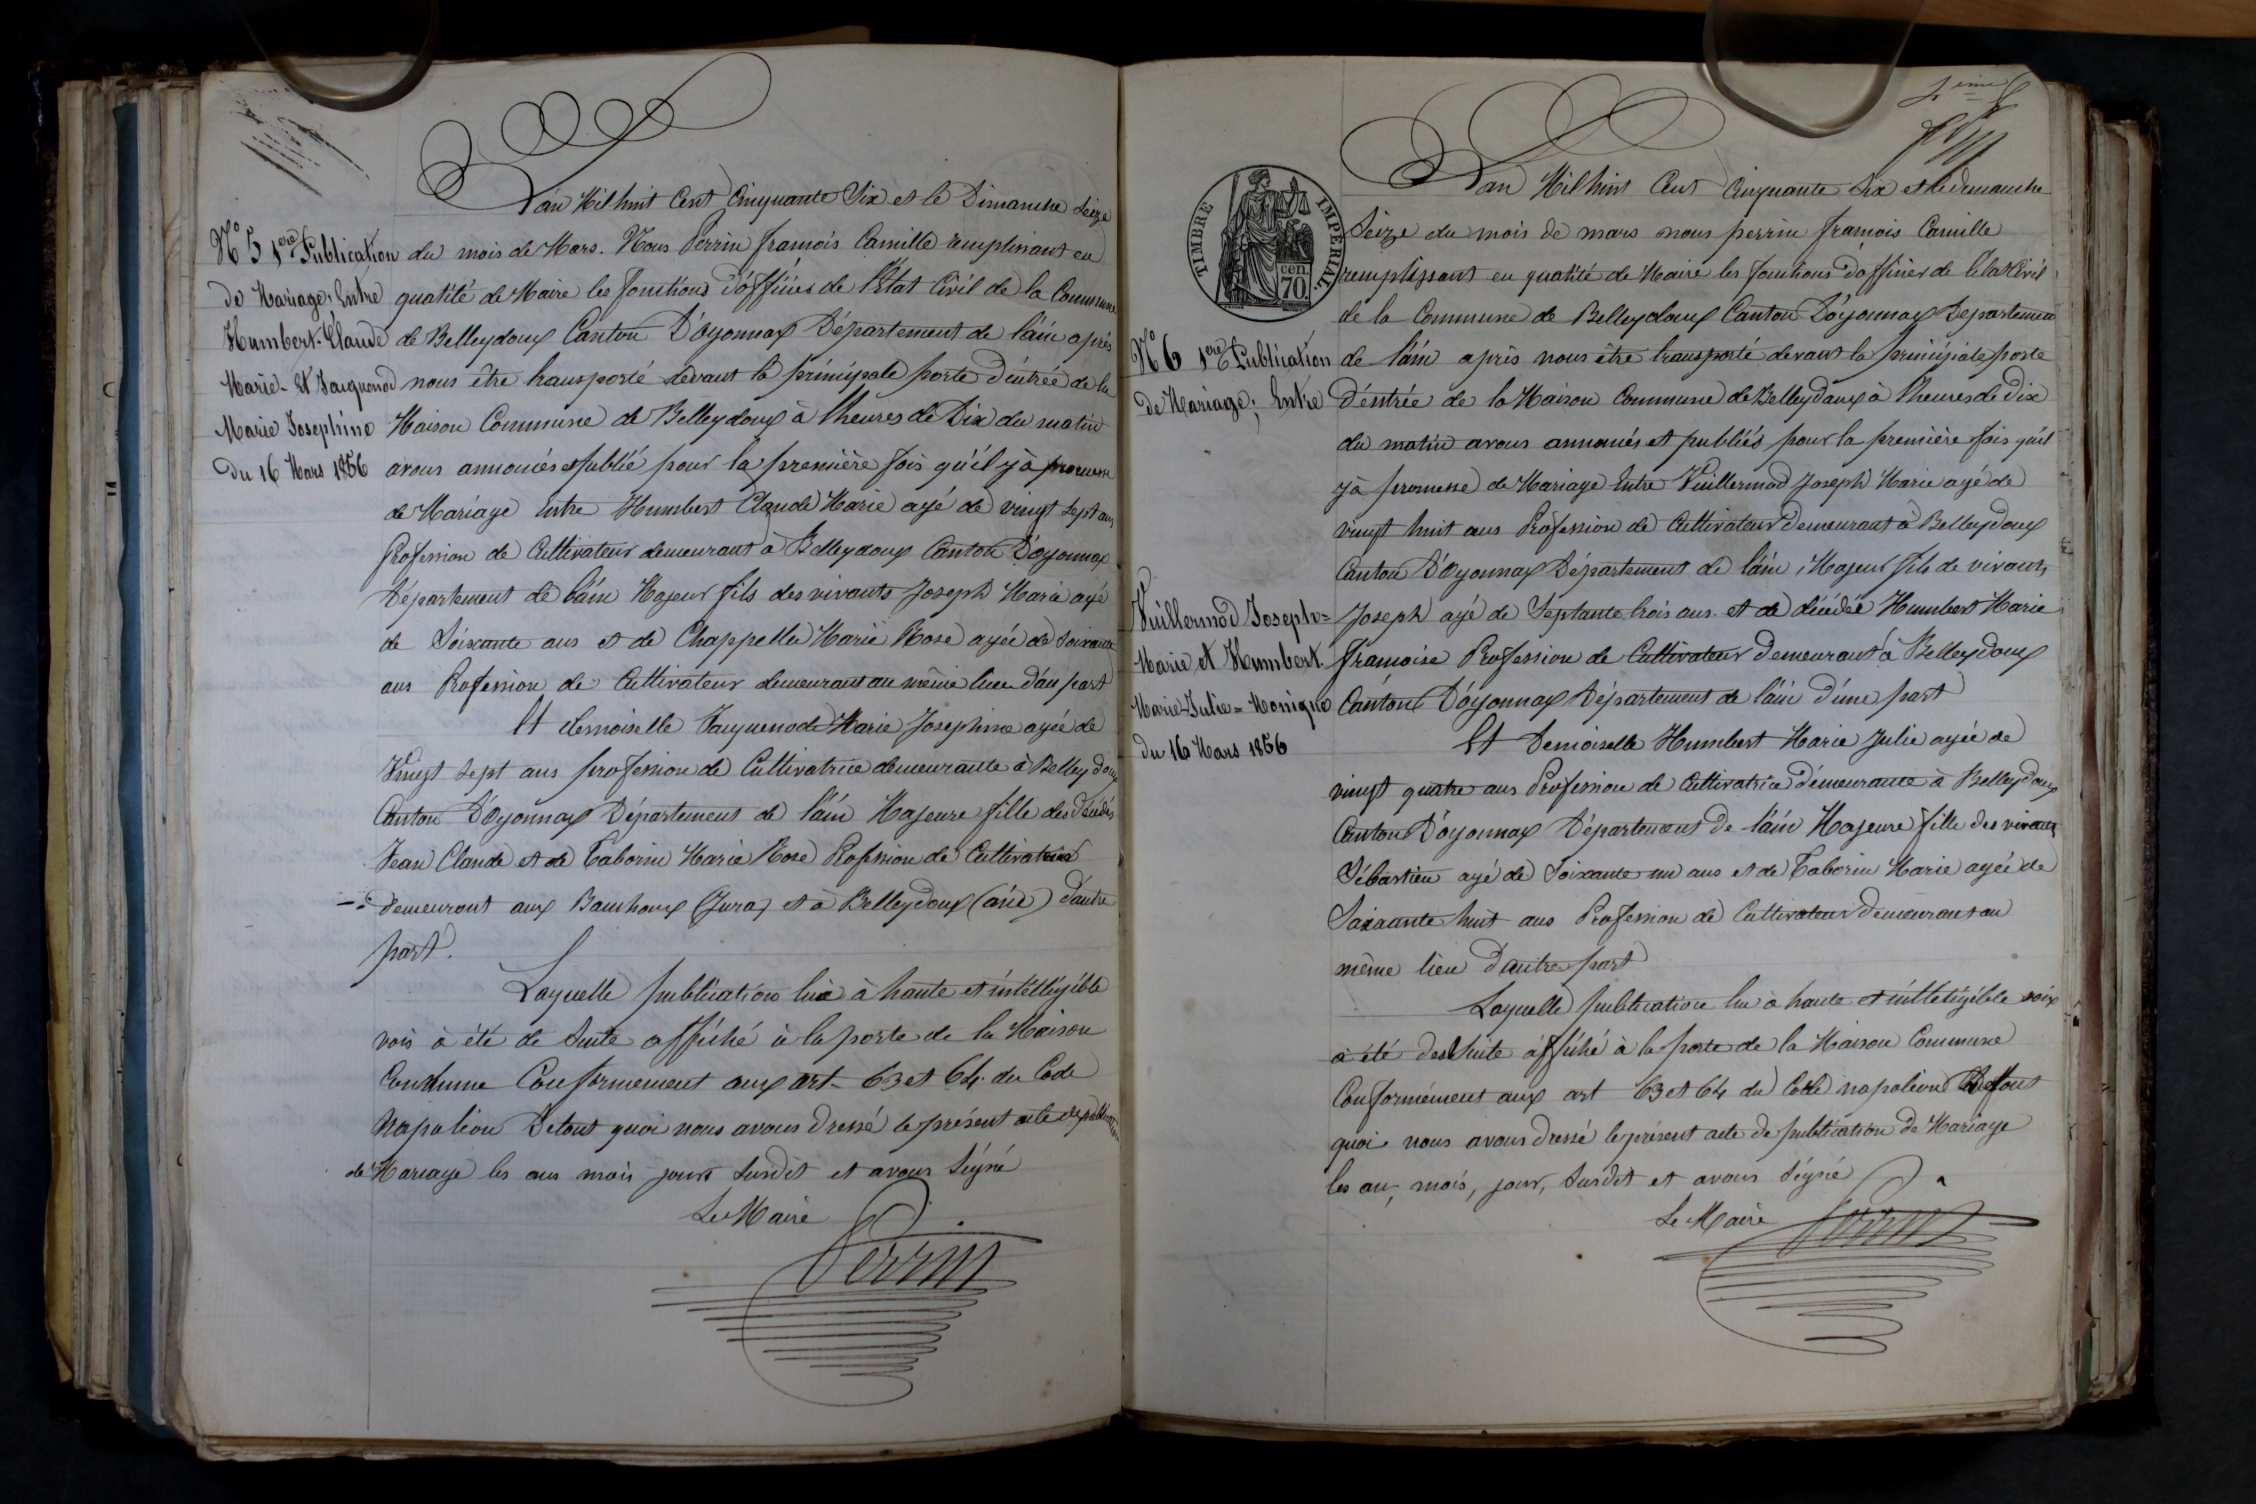 L'an Mil huit Cent Cinquante Six et le Dimanche Seize
N° 5 1ère Publication
de Mariage Entre
Humbert Claude
Marie - Et Jacquenod
Marie Josephine
du 16 Mars 1856
du mois de Mars. Nous Perrin françois Camille remplissant en
qualité de Maire les fonctions d'officier de l'État Civil de la Commune
de Belleydoux Canton D'Oyonnax Département de l'ain après
nous être transporté devant la principale porte d'entrée de la
Maison Commune de Belleydoux à l'heures de Dix du matin
avons annoncés et publié pour la première fois qu'il y à promesse
de Mariage Entre Humbert Claude Marie agé de vingt sept ans
Profession de Cultivateur demeurant à Belleydoux Canton D'oyonnax
Département de l'ain Majeur fils des vivants Joseph Marie agé
de Soixante ans et de Chappellu Marie Rose agée de Soixante
ans Profession de Cultivateur demeurant au même lieu d'un part
Et demoiselle Jacquenod Marie Josephine agée de
Vingt Sept ans profession de Cultivatrice demeurante à Belleydoux
Canton D'Oyonnax Département de l'ain Majeure fille des décédés
Jean Claude et de Taborin Marie Rose Profession de Cultivateur
demeuront aux (Jura) et à Belleydoux (ain) d'autre
part.
Laquelle publication lue à haute et intelligible
voix à été de Suite affiché à la porte de la Maison
Commune Conformement aux art- 63 et 64 du Code
Napoléon De tout quoi nous avons Dressé le présent acte de publication
de Mariage les ans mois jours Susdit et avons Signé
Le Maire
Perrin
4ème
TIMBRE IMPERIAL
cen
70
L'an Mil huit Cent Cinquante Six et le dimanche
Seize du mois de mars nous perrin françois Camille
remplissant en qualité de Maire les fonctions d'officier de l'État Civil
de la Commune de Belleydoux Canton D'Oyonnax Departement
N° 6 1ère Publication
de Mariage; Entre
Vuillermod Joseph=
Marie et Humbert
Marie-Julie=Monique
du 16 Mars 1856
de l'ain après nous être transporté devant la principale porte
d'entrée de la Maison Commune de Belleydoux à l'heures de Dix
du matin avons annoncés et publiés pour la première fois qu'il
y à promesse de Mariage Entre Vuillermod Joseph Marie agé de
vingt huit ans Profession de Cultivateur demeurant à Belleydoux
Canton D'Oyonnax Département de l'ain, Majeur fils de vivants
Joseph agé de Septante trois ans et de décédée Humbert Marie
françoise Profession de Cultivateur demeurant à Belleydoux
Canton D'Oyonnax Département de l'ain d'une part
Et Demoiselle Humbert Marie Julie agée de
vingt quatre ans Profession de Cultivatrice demeurante à Belleydoux
Canton D'Oyonnax Département De l'ain Majeure fille des vivants
Sébastien agé de Soixante un ans et de Taborin Marie agée de
Soixante huit ans Profession de Cultivateur demeurant au
même lieu D'autre part
Laquelle publication lu à haute et intteligible voix
à été des Suite affiché à la porte de la Maison Commune
Conformément aux art 63 et 64 du Code napoléon De tout
quoi nous avons dressé le présent acte de publication de Mariage
les an, mois, jour, Susdit et avons Signé
Le Maire Perrin